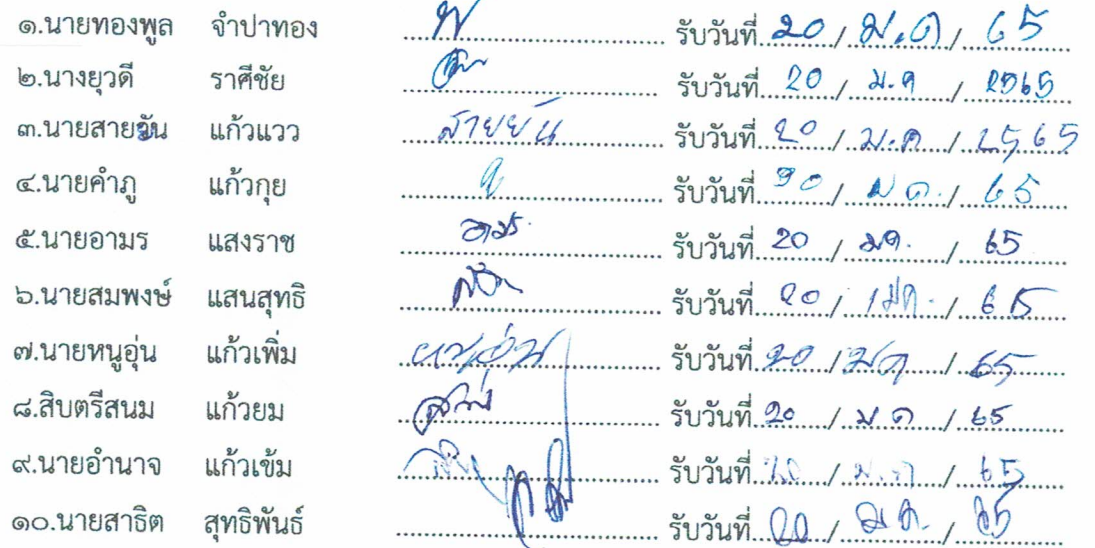 ๑.นายทองพูล จำปาทอง รับวันที่ 20 / ม.ค / 65
๒.นางยุวดี ราศีชัย รับวันที่ 20 / ม.ค / 2565
๓.นายสายยัน แก้วแวว สายยัน รับวันที่ 20 / ม.ค / 2565
๔.นายคำภู แก้วกุย รับวันที่ 20 / ม ค. / 65
๕.นายอามร แสงราช อามร รับวันที่ 20 / มค. / 65
๖.นายสมพงษ์ แสนสุทธิ รับวันที่ 20 / / 65
๗.นายหนูอุ่น แก้วเพิ่ม หนูอุ่น รับวันที่ 20 / มค / 65
๘.สิบตรีสนม แก้วยม รับวันที่ 20 / ม ค / 65
๙.นายอำนาจ แก้วเข้ม รับวันที่ 20 / ม.ค / 65
๑๐.นายสาธิต สุทธิพันธ์ รับวันที่ 20 / ม ค. / 65